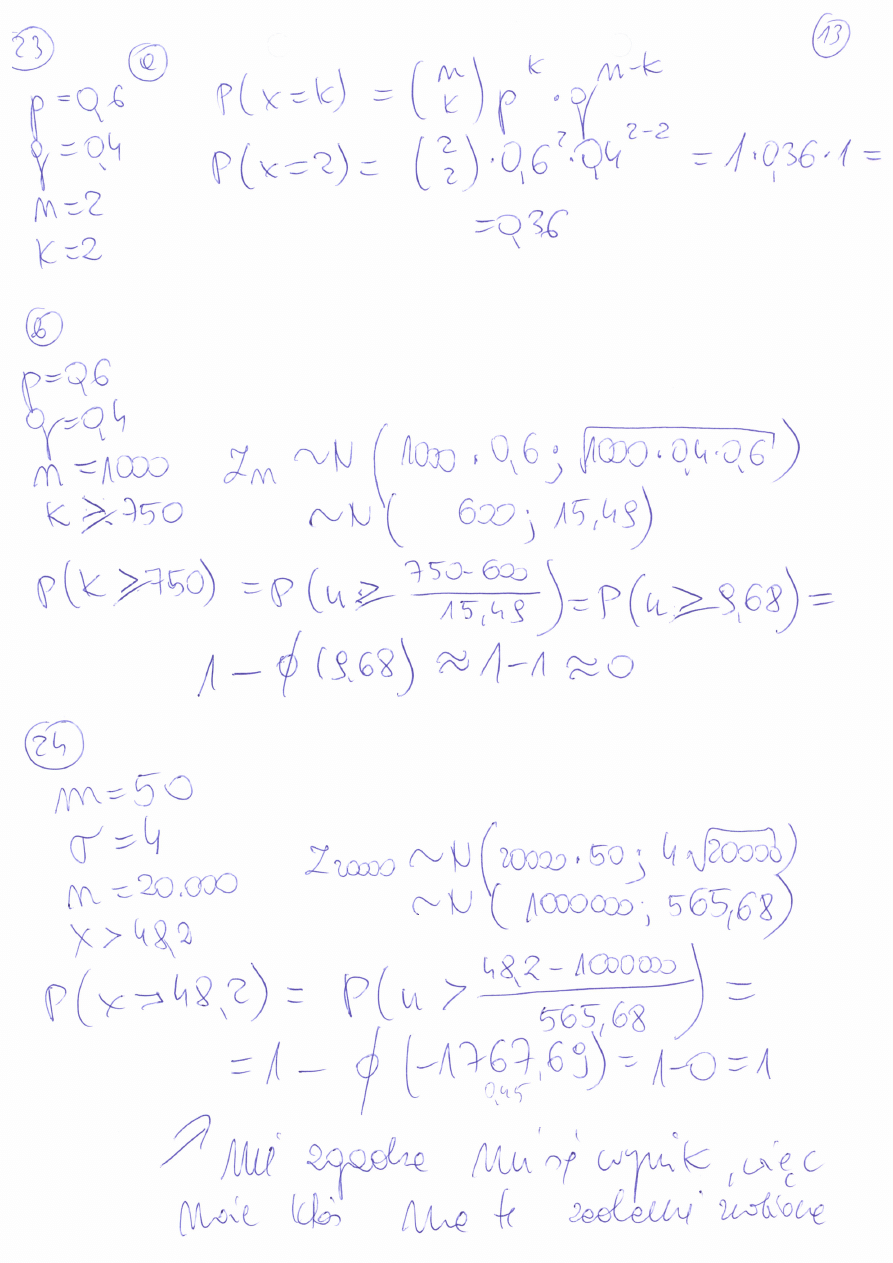 23 a 13
p = 0,6 P(x=k) = (n k) p^k · q^(n-k)
q = 0,4 P(x=2) = (2 2) · 0,6^2 · 0,4^(2-2) = 1 · 0,36 · 1 =
n = 2 = 0,36
k = 2
b
p = 0,6
q = 0,4
n = 1000 Zn ~ N (1000 · 0,6 ; √(1000 · 0,4 · 0,6))
k ≥ 750 ~ N ( 600 ; 15,49)
P(k ≥ 750) = P(u ≥ (750-600)/15,49) = P(u ≥ 9,68) =
1 - ϕ (9,68) ≈ 1-1 ≈ 0
24
m = 50
σ = 4
n = 20.000 Z20000 ~ N (20000 · 50 ; 4√20000)
x > 48,2 ~ N ( 1000000 ; 565,68)
P(x > 48,2) = P(u > (48,2 - 1000000)/565,68) =
= 1 - ϕ (-1767,69) = 1-0 = 1
0,45
↗ Nie zgadza mi się wynik, więc
może ktoś ma to zadanie zrobione